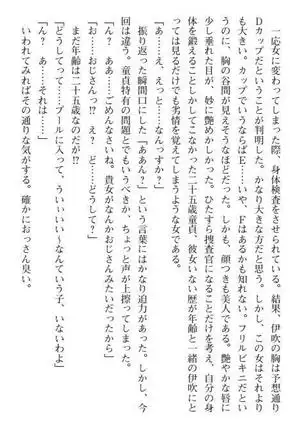 一応女に変わってしまった際、身体検査をさせられている。結果、伊吹の胸は予想通り
Dカップだということが判明した。かなり大きな方だと思う。しかし、この女はそれより
も大きい。カップでいうならばEか……いや、Fはあるかも知れない。フリルビキニだとい
うのに、胸の谷間が見えそうなほどだった。しかも、顔つきも美人である。艶やかな唇に
少し垂れた目が、妙に艶めかしかった。ひたすら捜査官になることだけを考え、自分の身
体を鍛えることしかしてこなかった二十五歳童貞、彼女いない歴が年齢と一緒の伊吹にと
っては見るだけでも劣情を覚えてしまうような女である。
「あ……え、えっと……なんっすか?」
振り返った瞬間口にした『ああん?』という言葉にはかなり迫力があった。しかし、今
回は違う。童貞特有の問題とでもいうべきか、ちょっと声が上擦ってしまった。
「ん? あ……ごめんなさいね。貴女がなんかおじさんみたいだったから」
「お……おじさんっ!? え? ど……どうして?」
まだ年齢は二十五歳なのだが!?
「どうしてって……プールに入って、うぃぃぃ～なんていう子、いないわよ」
「ん、あ……それは……」
いわれてみればその通りな気がする。確かにおっさん臭い。